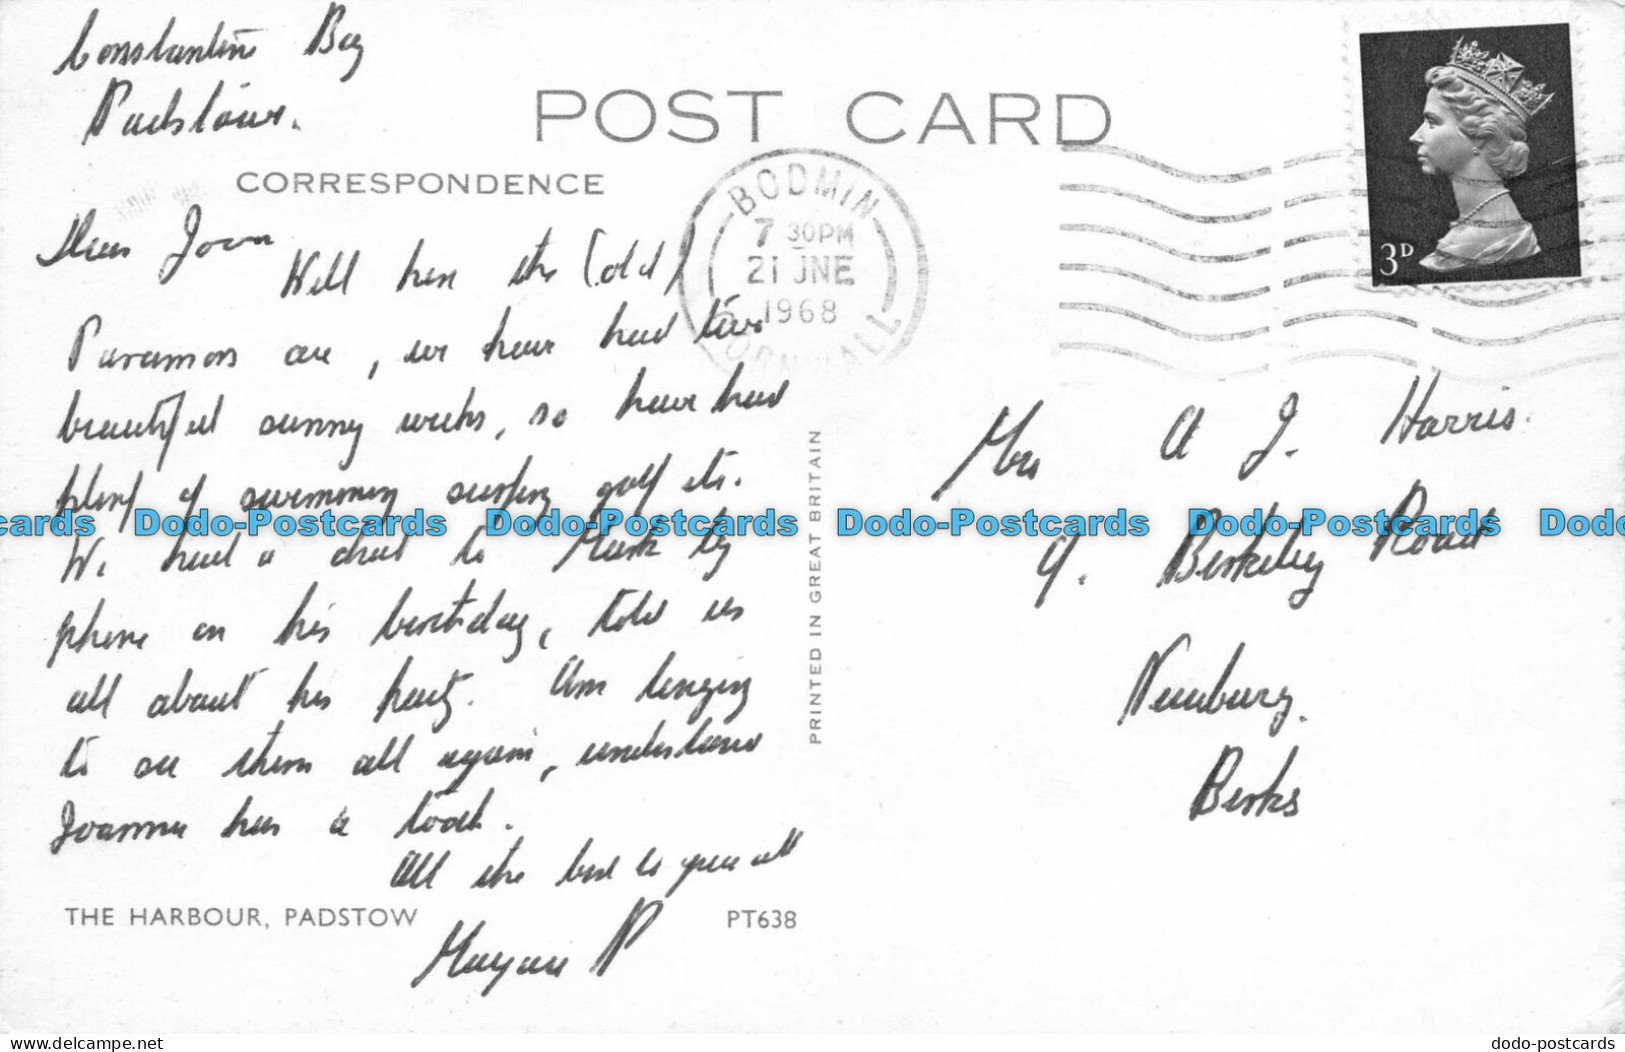 Constantine Bay
Padstow.
POST CARD
CORRESPONDENCE
BODMIN
7 30PM
21 JNE
1968
CORNWALL
3D
Dear Joan
Well here the (old)
are, we have had two
beautiful sunny weeks, so have had
plenty of swimming surfing golf etc.
We had a chat to Mark by
phone on his birthday, told us
all about his party. Am longing
to see them all again, understand
Joanna has a tooth.
All the best to you all
P
THE HARBOUR, PADSTOW
PT638
PRINTED IN GREAT BRITAIN
Mrs A J. Harris.
9. Berkeley Road
Newbury.
Berks
Dodo-Postcards Dodo-Postcards Dodo-Postcards Dodo-Postcards
Image hosted by Delcampe.net
dodo-postcards